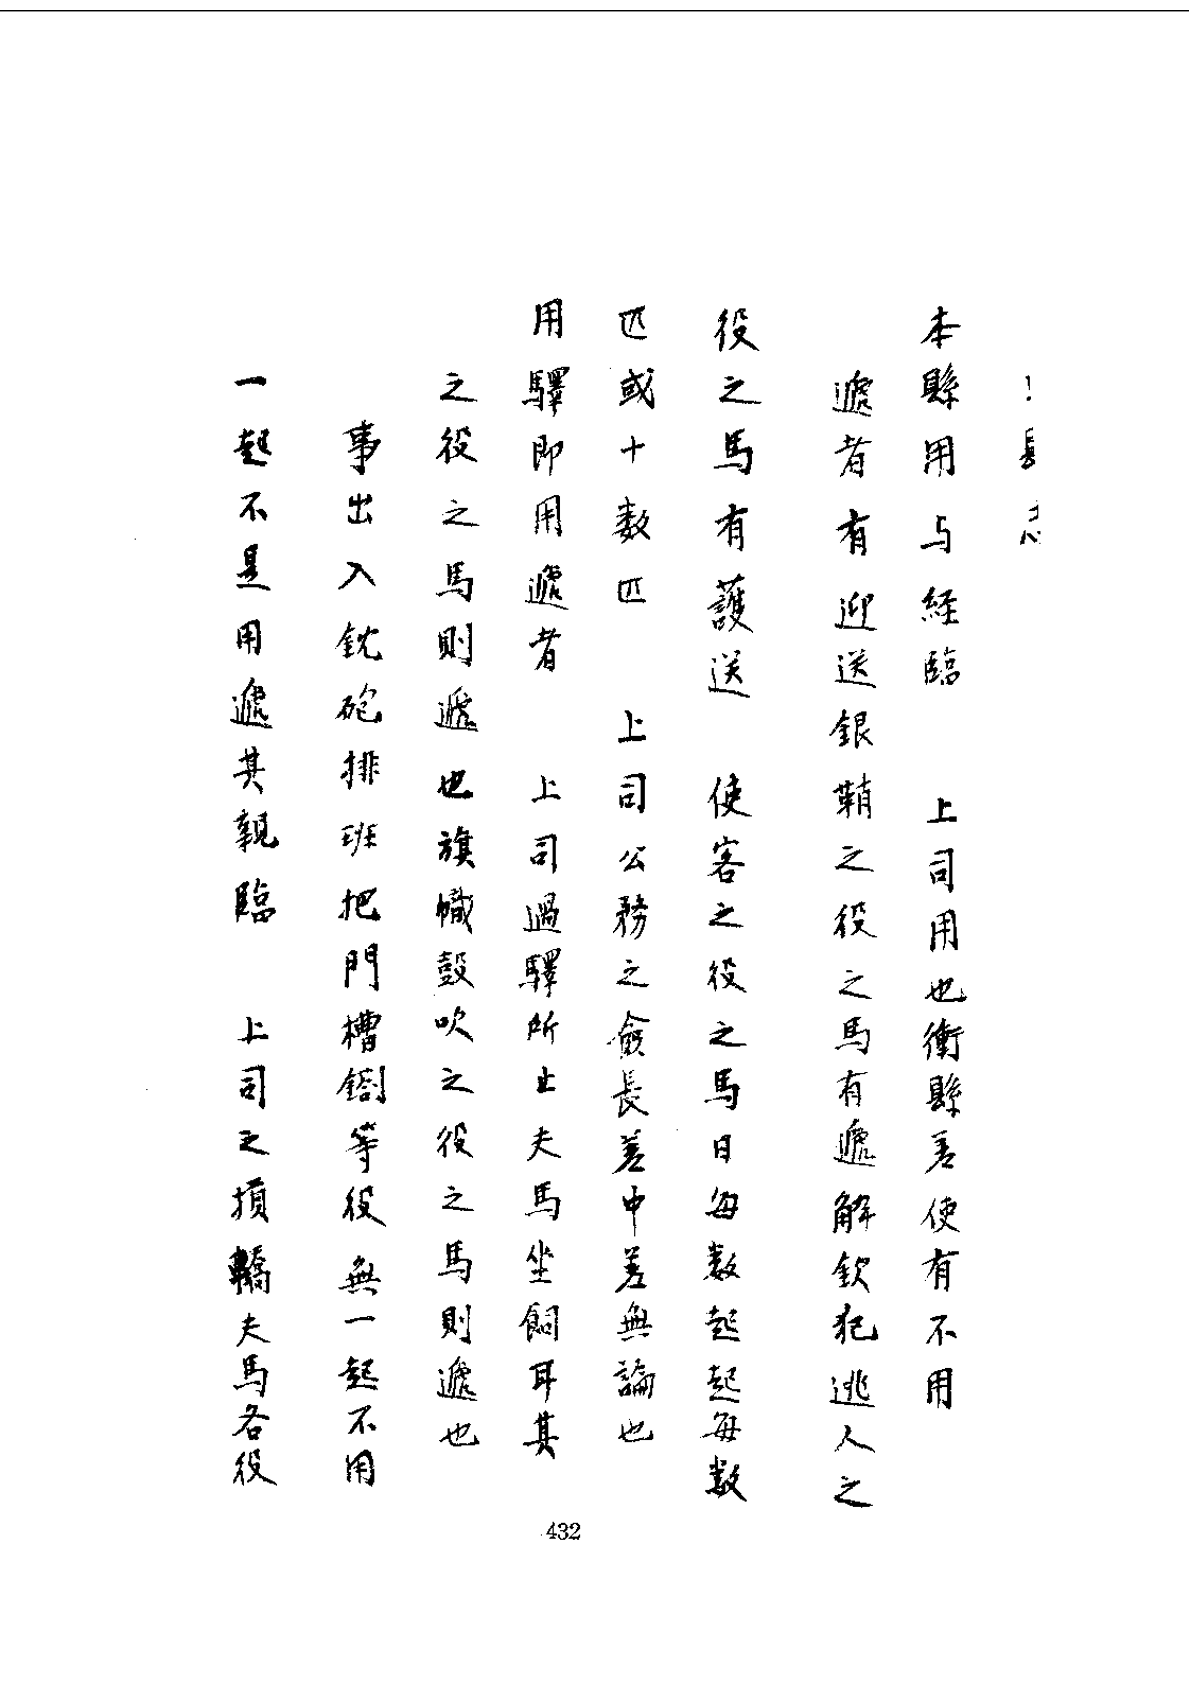 本縣用与経臨　上司用也衝縣差使有不用
遞者有迎送銀鞘之役之馬有遞解欽犯逃人之
役之馬有護送　使客之役之馬日每数起起每数
匹或十数匹　上司公務之僉長差中差無論也
用驛即用遞者　上司過驛所止夫馬坐飼耳其
之役之馬則遞也旗幟鼓吹之役之馬則遞也
事出入銃砲排班把門槽鍘等役無一起不用
一起不是用遞其親臨　上司之損轎夫馬各役
432